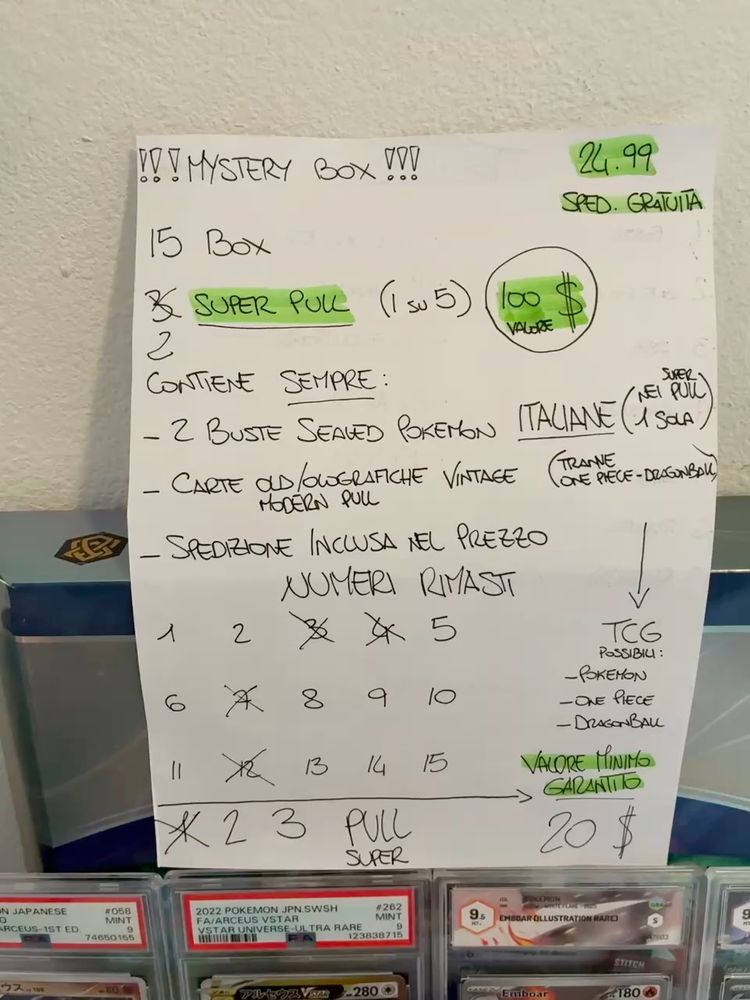 !!! MYSTERY BOX !!!
24.99
SPED. GRATUITA
15 BOX
3 SUPER PULL (1 SU 5) 100 $
VALORE
2
CONTIENE SEMPRE:
- 2 BUSTE SEALED POKEMON ITALIANE (NEI SUPER PULL 1 SOLA)
- CARTE OLD/OLOGRAFICHE VINTAGE (TRANNE
MODERN PULL ONE PIECE - DRAGONBALL)
- SPEDIZIONE INCLUSA NEL PREZZO
NUMERI RIMASTI
1 2 3 4 5
6 7 8 9 10
11 12 13 14 15
TCG
POSSIBILI:
- POKEMON
- ONE PIECE
- DRAGONBALL
VALORE MINIMO
GARANTITO
20 $
1 2 3 PULL
SUPER
N JAPANESE #058
MINT
ARCEUS-1ST ED. 9
74650155
2022 POKEMON JPN.SWSH #262
FA/ARCEUS VSTAR MINT
VSTAR UNIVERSE-ULTRA RARE 9
123838715
9.5
POKEMON
EMBOAR (ILLUSTRATION RARE)
S
STITCH
アルセウス VSTAR 280
Emboar 180